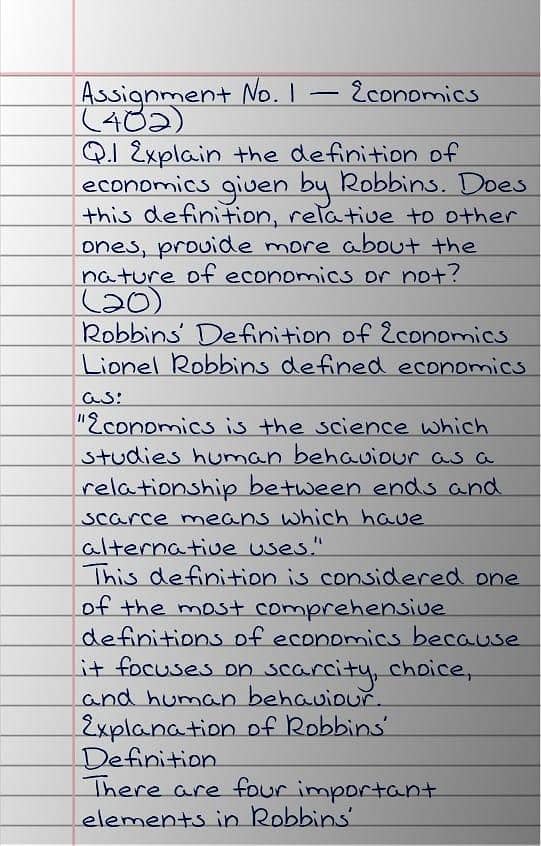 Assignment No. 1 — Economics
(402)
Q.1 Explain the definition of
economics given by Robbins. Does
this definition, relative to other
ones, provide more about the
nature of economics or not?
(20)
Robbins' Definition of Economics
Lionel Robbins defined economics
as:
"Economics is the science which
studies human behaviour as a
relationship between ends and
scarce means which have
alternative uses."
This definition is considered one
of the most comprehensive
definitions of economics because
it focuses on scarcity, choice,
and human behaviour.
Explanation of Robbins'
Definition
There are four important
elements in Robbins'